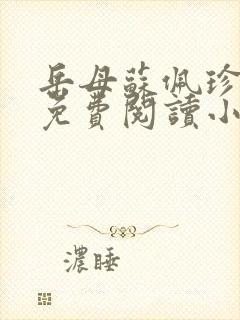 岳母蘇佩珍
免費閱讀小
濃睡